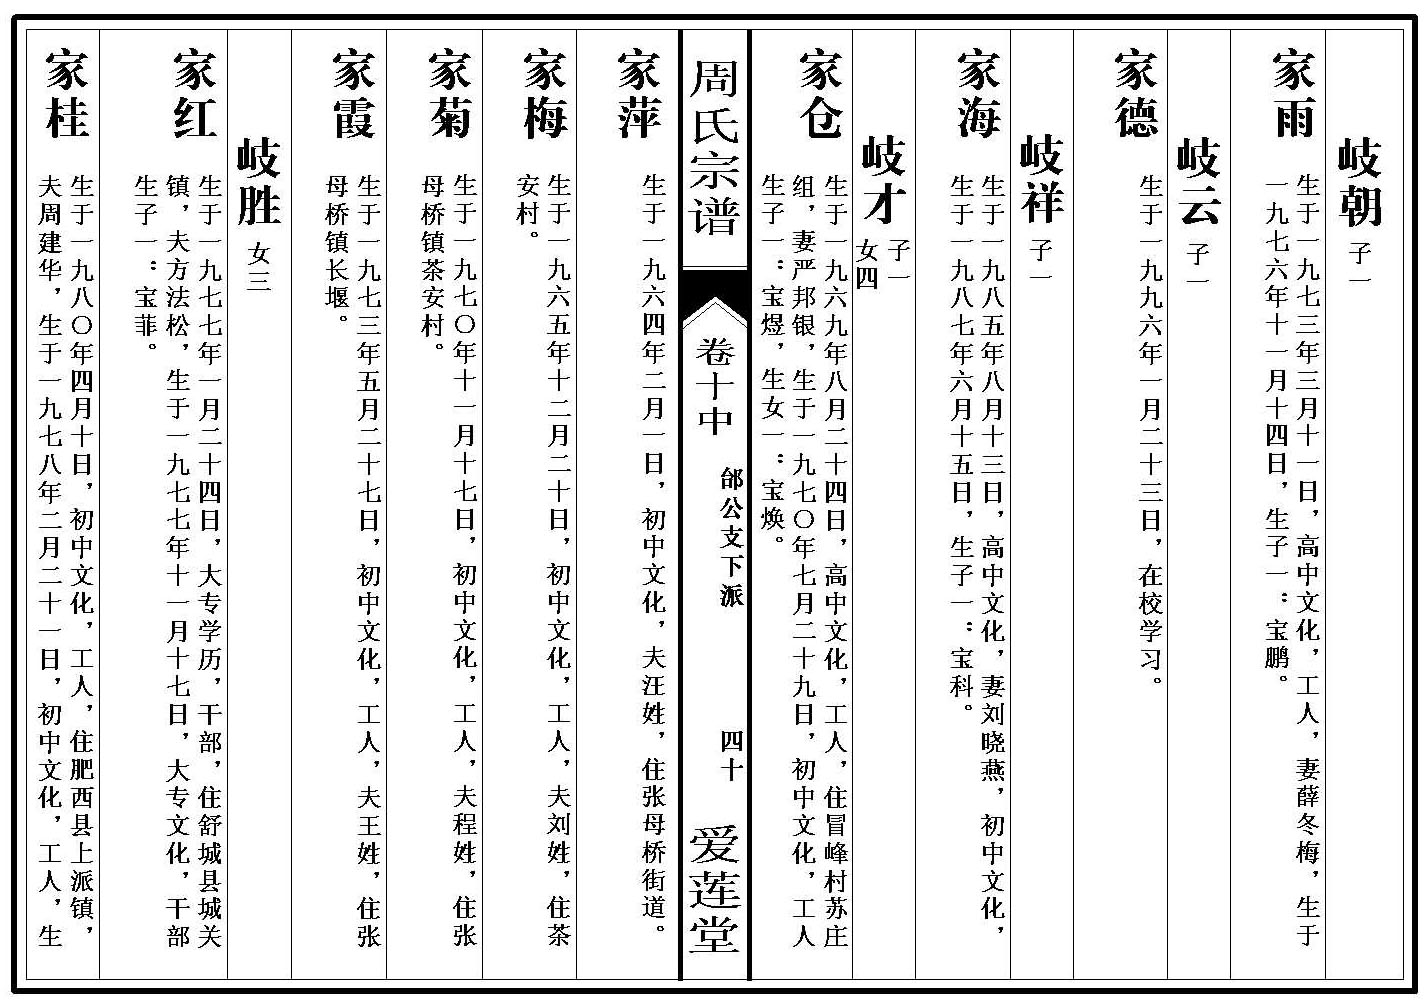 岐朝 子一
家雨
生于一九七三年三月十一日，高中文化，工人，妻薛冬梅，生于
一九七六年十一月十四日，生子一：宝鹏。
岐云 子一
家德
生于一九九六年一月二十三日，在校学习。
岐祥 子一
家海
生于一九八五年八月十三日，高中文化，妻刘晓燕，初中文化，
生于一九八七年六月十五日，生子一：宝科。
岐才 子一
女四
家仓
生于一九六九年八月二十四日，高中文化，工人，住冒峰村苏庄
组，妻严邦银，生于一九七〇年七月二十九日，初中文化，工人
生子一：宝煜，生女一：宝焕。
周氏宗谱
卷十中
邰公支下派
四十
爱莲堂
家萍
生于一九六四年二月一日，初中文化，夫汪姓，住张母桥街道。
家梅
生于一九六五年十二月二十日，初中文化，工人，夫刘姓，住茶
安村。
家菊
生于一九七〇年十一月十七日，初中文化，工人，夫程姓，住张
母桥镇茶安村。
家霞
生于一九七三年五月二十七日，初中文化，工人，夫王姓，住张
母桥镇长堰。
岐胜 女三
家红
生于一九七七年一月二十四日，大专学历，干部，住舒城县城关
镇，夫方法松，生于一九七七年十一月十七日，大专文化，干部
生子一：宝菲。
家桂
生于一九八〇年四月十日，初中文化，工人，住肥西县上派镇，
夫周建华，生于一九七八年二月二十一日，初中文化，工人，生